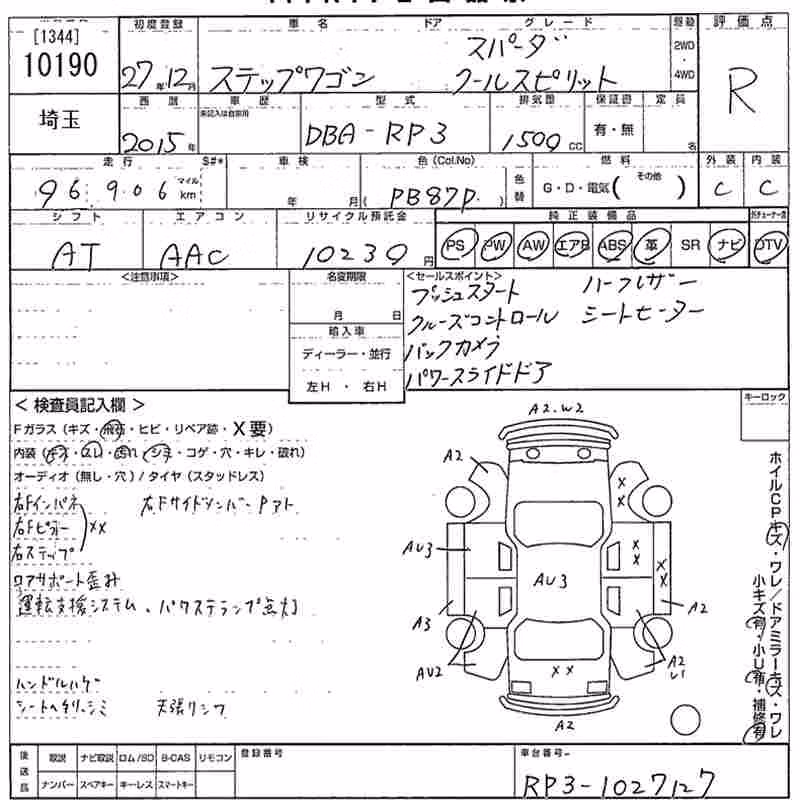 [1344]
10190
初度登録
27年12月
車名 ドア グレード
ステップワゴン
スパーダ
クールスピリット
駆動
2WD
・
4WD
評価点
R
埼玉
西暦
2015年
車歴
未記入は自家用
型式
DBA-RP3
排気量
1500cc
保証書
有・無
定員
名
走行 S#*
96,906 マイル km
車検
年 月
色(Col.No)
(PB87P.)
色替
燃料
G・D・電気( その他 )
外装
C
内装
C
シフト
AT
エアコン
AAC
リサイクル預託金
10230円
純正装備品
PS PW AW エアB ABS 革 SR ナビ DTV
＜注意事項＞
名変期限
月 日
輸入車
ディーラー・並行
左H・右H
＜セールスポイント＞
プッシュスタート ハーフレザー
クルーズコントロール シートヒーター
バックカメラ
パワースライドドア
＜検査員記入欄＞
Fガラス(キズ・飛石・ヒビ・リペア跡・X要)
内装(キズ・スレ・汚れ・シミ・コゲ・穴・キレ・破れ)
オーディオ(無し・穴)/タイヤ(スタッドレス)
右Fインパネ 右Fサイドメンバー Pアト
右Fピラー XX
右ステップ
ロアサポート歪み
運転支援システム、パワステランプ点灯
ハンドルハゲ
シートヘタリ、シミ 天張リシワ
キーロック
ホイルCPキズ・ワレ/ドアミラーキズ・ワレ
小キズ有・小U有・補修有
A2.W2
A2
X
X
AU3
XX
XX
AU3
A3
A2
AU2
A2
U1
XX
A2
後送品
取説 ナビ取説 ロム/SD B-CAS リモコン
ナンバー スペアキー キーレス スマートキー
登録番号
車台番号
RP3-1027127